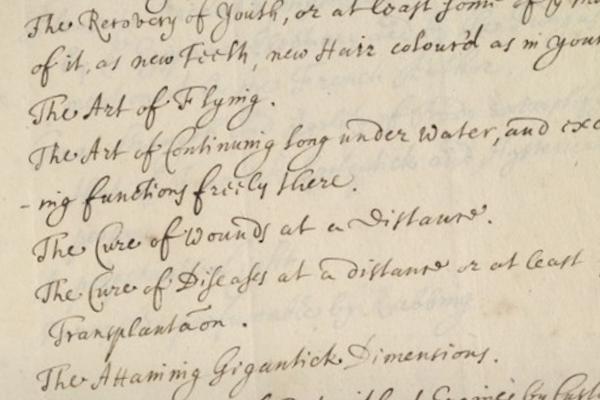 The Recovery of Youth, or at least some of
of it, as new Teeth, new Hair colour'd as in your
The Art of Flying.
The Art of Continuing long under Water, and exc
-ing functions freely there.
The Cure of Wounds at a Distance.
The Cure of Diseases at a distance or at least
Transplantaõn.
The Attaining Gigantick Dimensions.